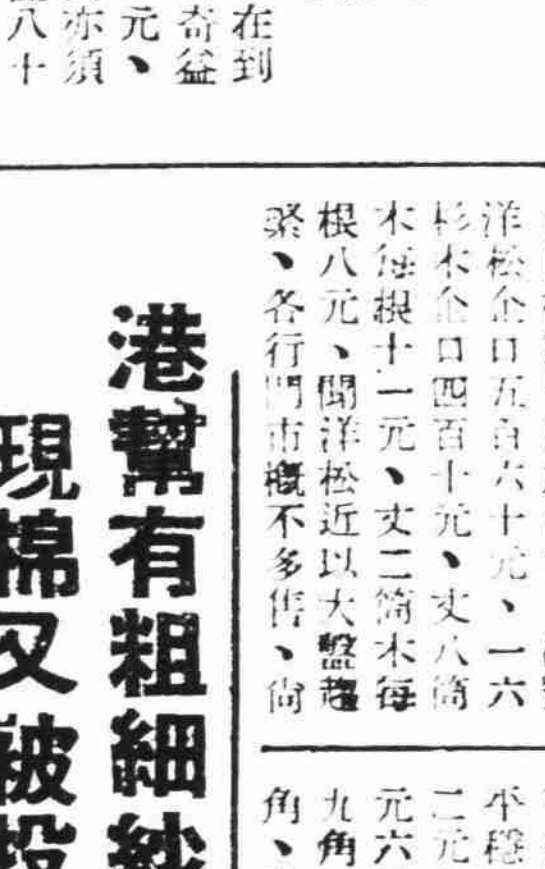 在到
奇益
元、
亦須
八十
洋松企口五百六十元、一六
杉木企口四百十元、丈八筒
木每根十一元、丈二筒木每
根八元、聞洋松近以大盤趨
緊、各行門市概不多售、尙
平穩
二元
元六
九角
角、
港幫有粗細紗
現棉又被投